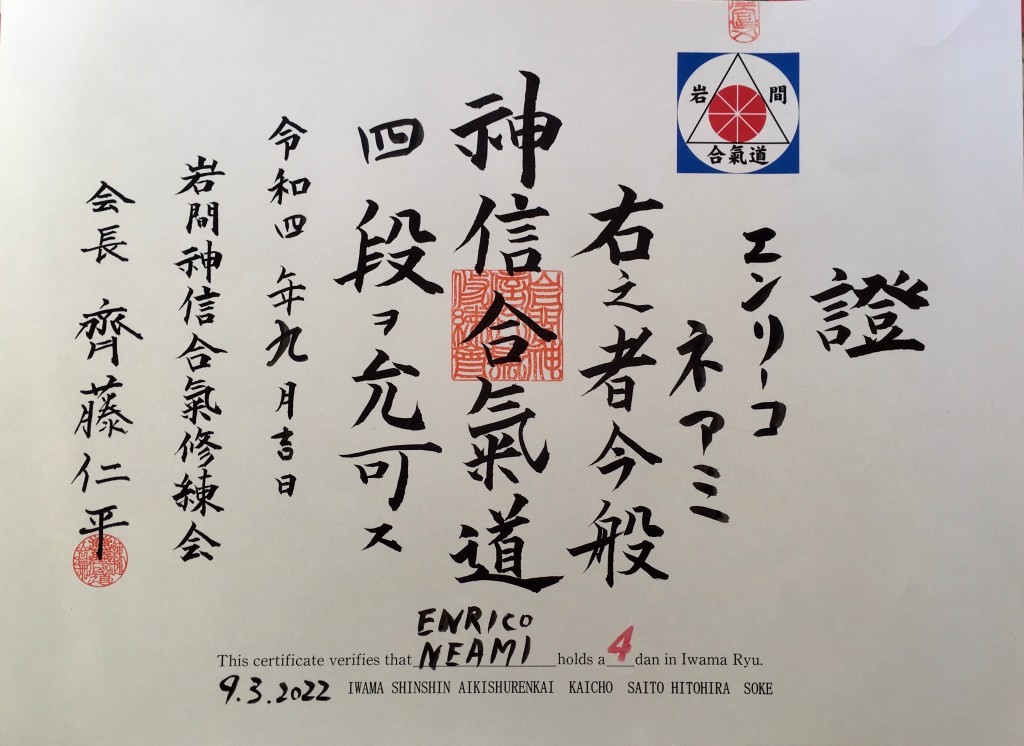 岩 間
合氣道
證
エンリーコ
ネアミ
右之者今般
神信合氣道
四段ヲ允可ス
令和四年九月吉日
岩間神信合氣修練会
会長 齊藤仁平
ENRICO
This certificate verifies that NEAMI holds a 4 dan in Iwama Ryu.
9.3.2022 IWAMA SHINSHIN AIKISHURENKAI KAICHO SAITO HITOHIRA SOKE